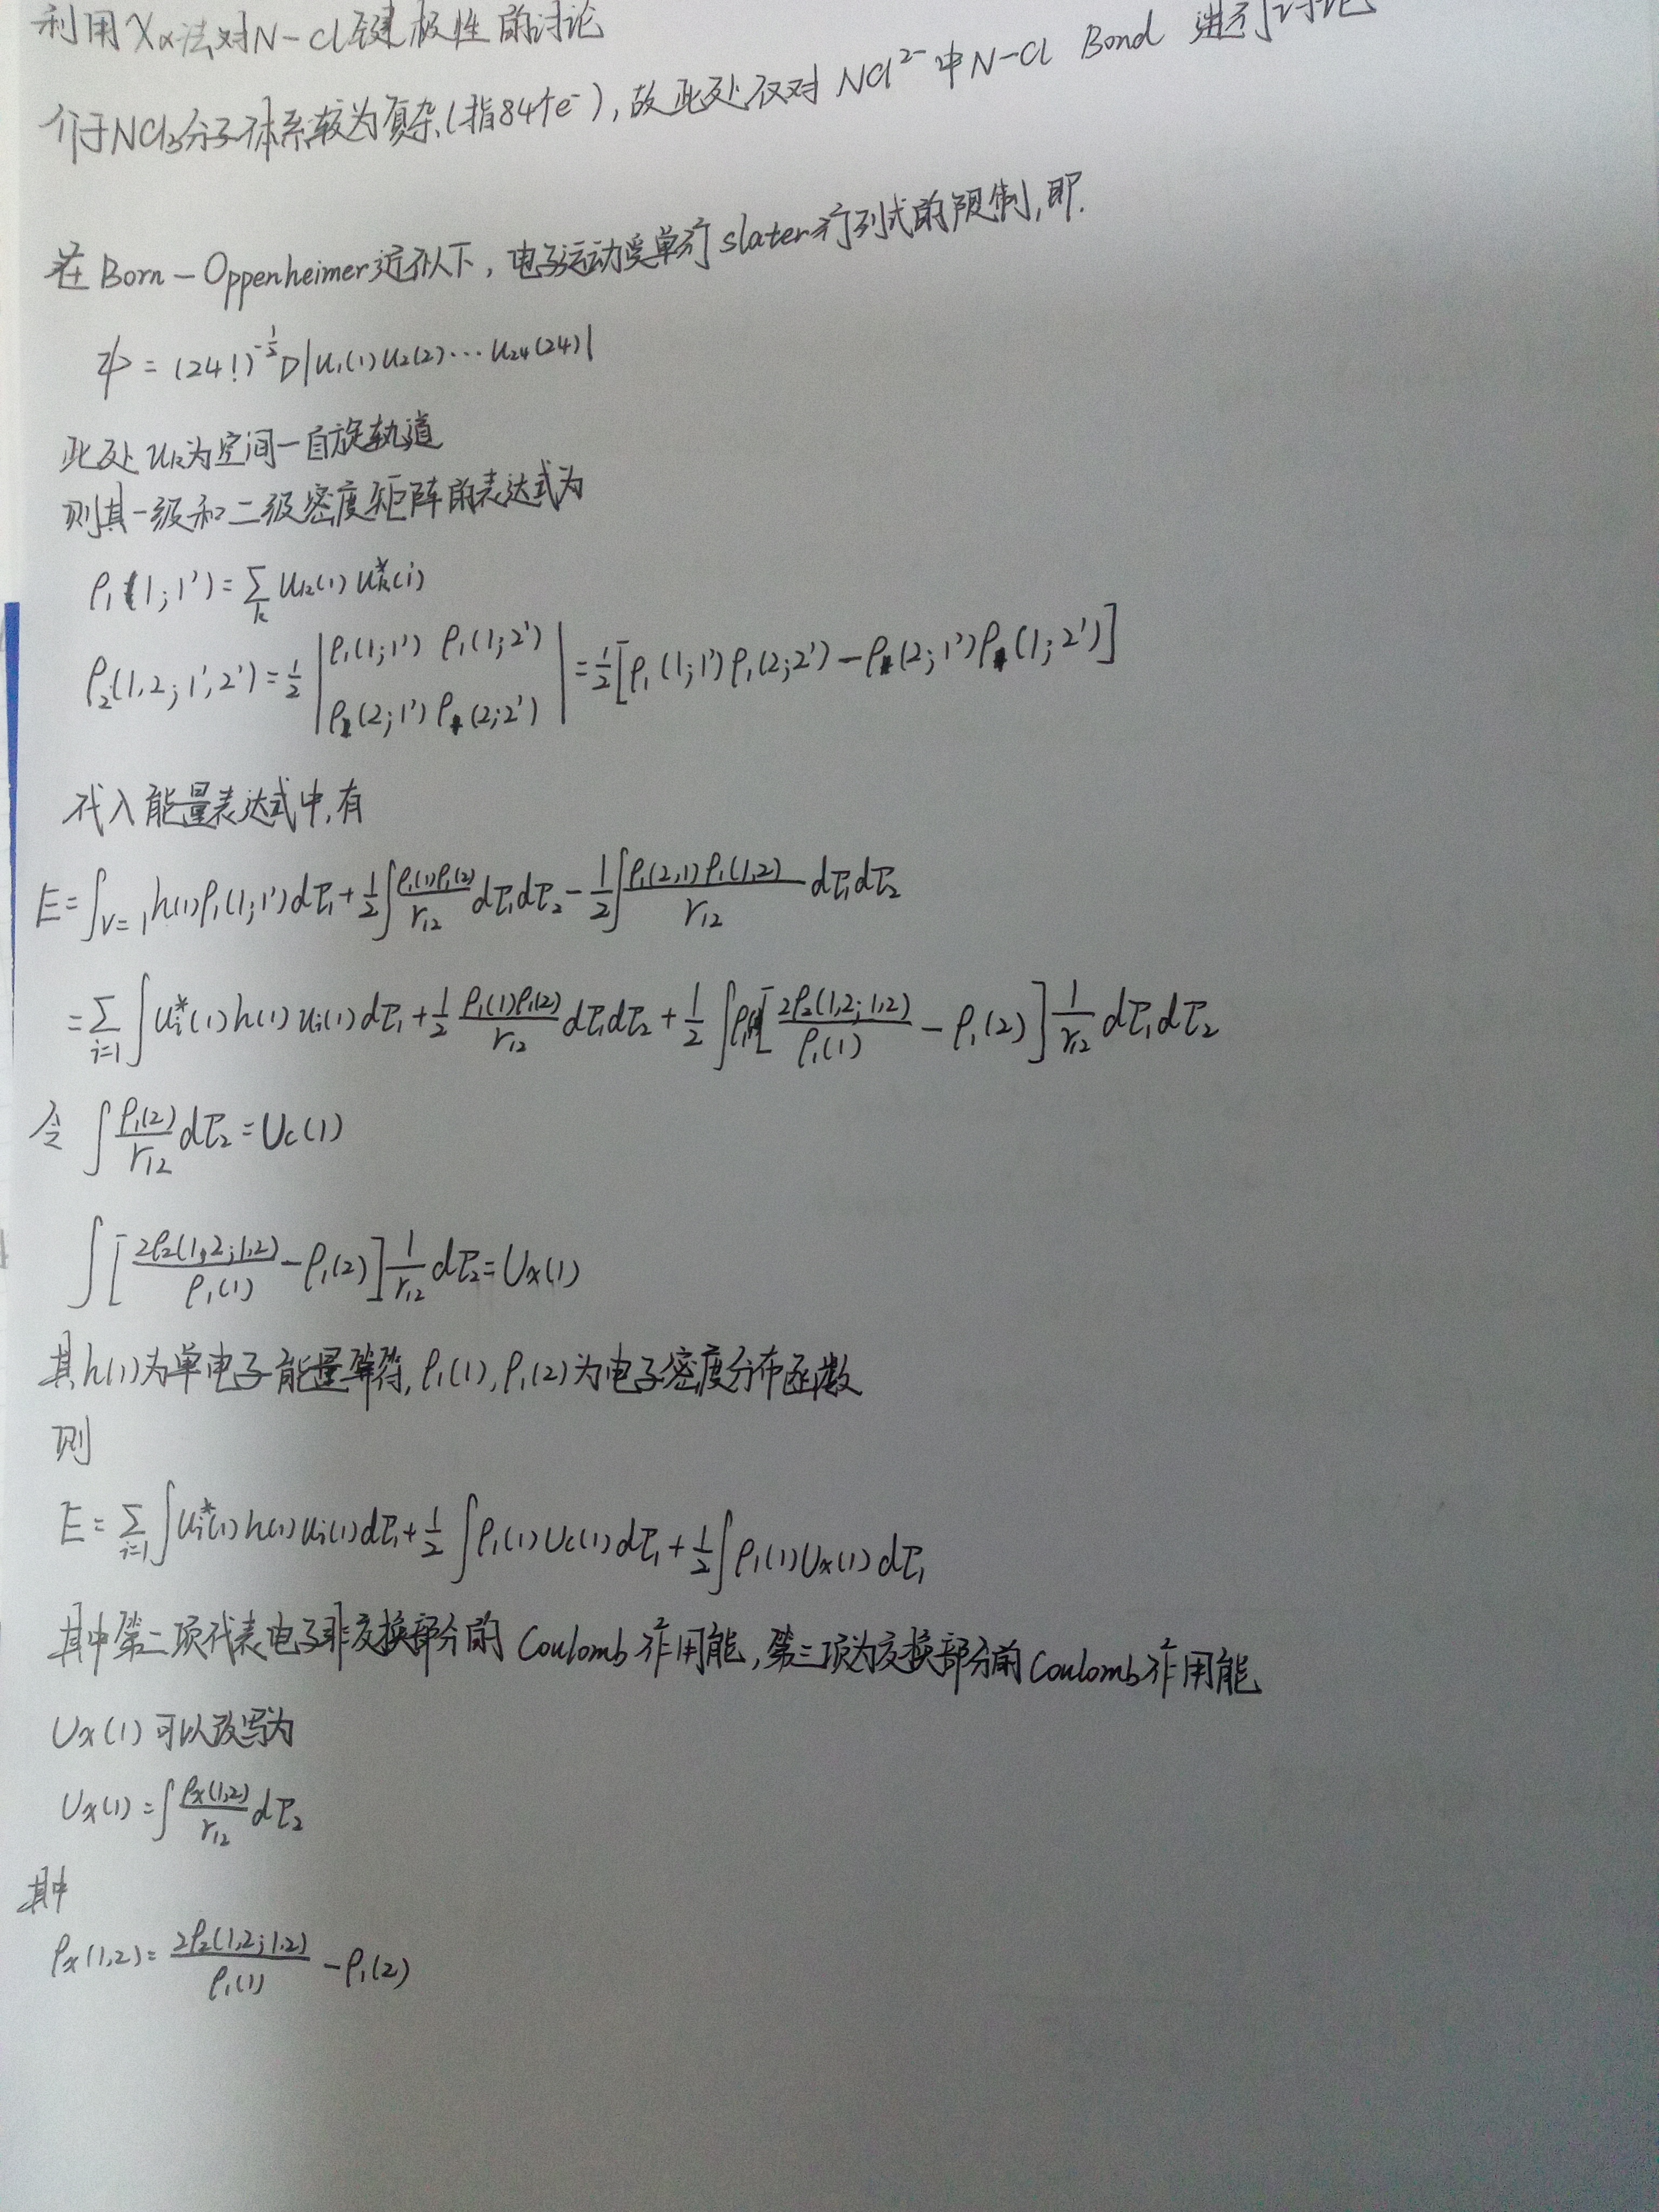 利用Xα法对N-Cl键极性的讨论
介于NCl₃分子体系较为复杂(指84个e⁻),故此处仅对 NCl²⁻中N-Cl Bond 进行讨论
在Born-Oppenheimer近似下,电子运动受单行slater行列式的限制,即.
ψ = (24!)^{-1/2} D|u₁(1)u₂(2)⋯u₂₄(24)|
此处uₖ为空间-自旋轨道
则其一级和二级密度矩阵的表达式为
ρ₁(1;1')=∑ₖ uₖ(1)uₖ*(i)
ρ₂(1,2;1',2')=½|ρ₁(1;1') ρ₁(1;2') ρ(2;1') ρ(2;2')|=½[ρ₁(1;1')ρ₁(2;2')-ρ(2;1')ρ(1;2')]
代入能量表达式中,有
E=∫_{V=1} h(1)ρ₁(1;1')dτ₁+½∫ρ₁(1)ρ₁(2)/r₁₂ dτ₁dτ₂-½∫ρ₁(2,1)ρ₁(1,2)/r₁₂ dτ₁dτ₂
=∑_{i=1}∫uᵢ*(1)h(1)uᵢ(1)dτ₁+½ ρ₁(1)ρ₁(2)/r₁₂ dτ₁dτ₂+½∫ρ₁(1)[2ρ₂(1,2;1,2)/ρ₁(1) - ρ₁(2)]1/r₁₂ dτ₁dτ₂
令 ∫ρ₁(2)/r₁₂ dτ₂=Uc(1)
∫[2ρ₂(1,2;1,2)/ρ₁(1) - ρ₁(2)]1/r₁₂ dτ₂=Ux(1)
其h(1)为单电子能量算符,ρ₁(1),ρ₁(2)为电子密度分布函数
则
E=∑_{i=1}∫uᵢ*(1)h(1)uᵢ(1)dτ₁+½∫ρ₁(1)Uc(1)dτ₁+½∫ρ₁(1)Ux(1)dτ₁
其中第二项代表电子非交换部分的 Coulomb作用能,第三项为交换部分的Coulomb作用能
Ux(1)可以改写为
Ux(1)=∫ρx(1,2)/r₁₂ dτ₂
其中
ρx(1,2)=2ρ₂(1,2;1,2)/ρ₁(1) - ρ₁(2)